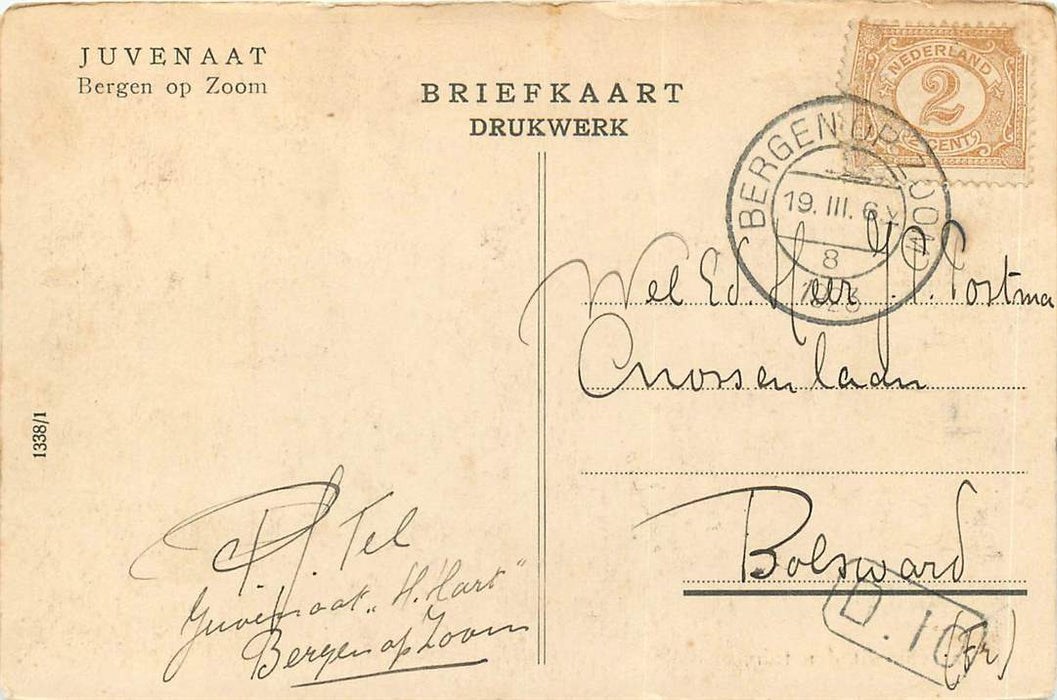 JUVENAAT
Bergen op Zoom
BRIEFKAART
DRUKWERK
NEDERLAND
2
CENT
BERGEN OP ZOOM
19. III. 6
8
1926
Wel Ed. Heer Postma
Cnossenlaan
Bolsward
(Fr)
D. 10
1338/1
P. J. Tel
Juvenaat „H. Hart"
Bergen op Zoom